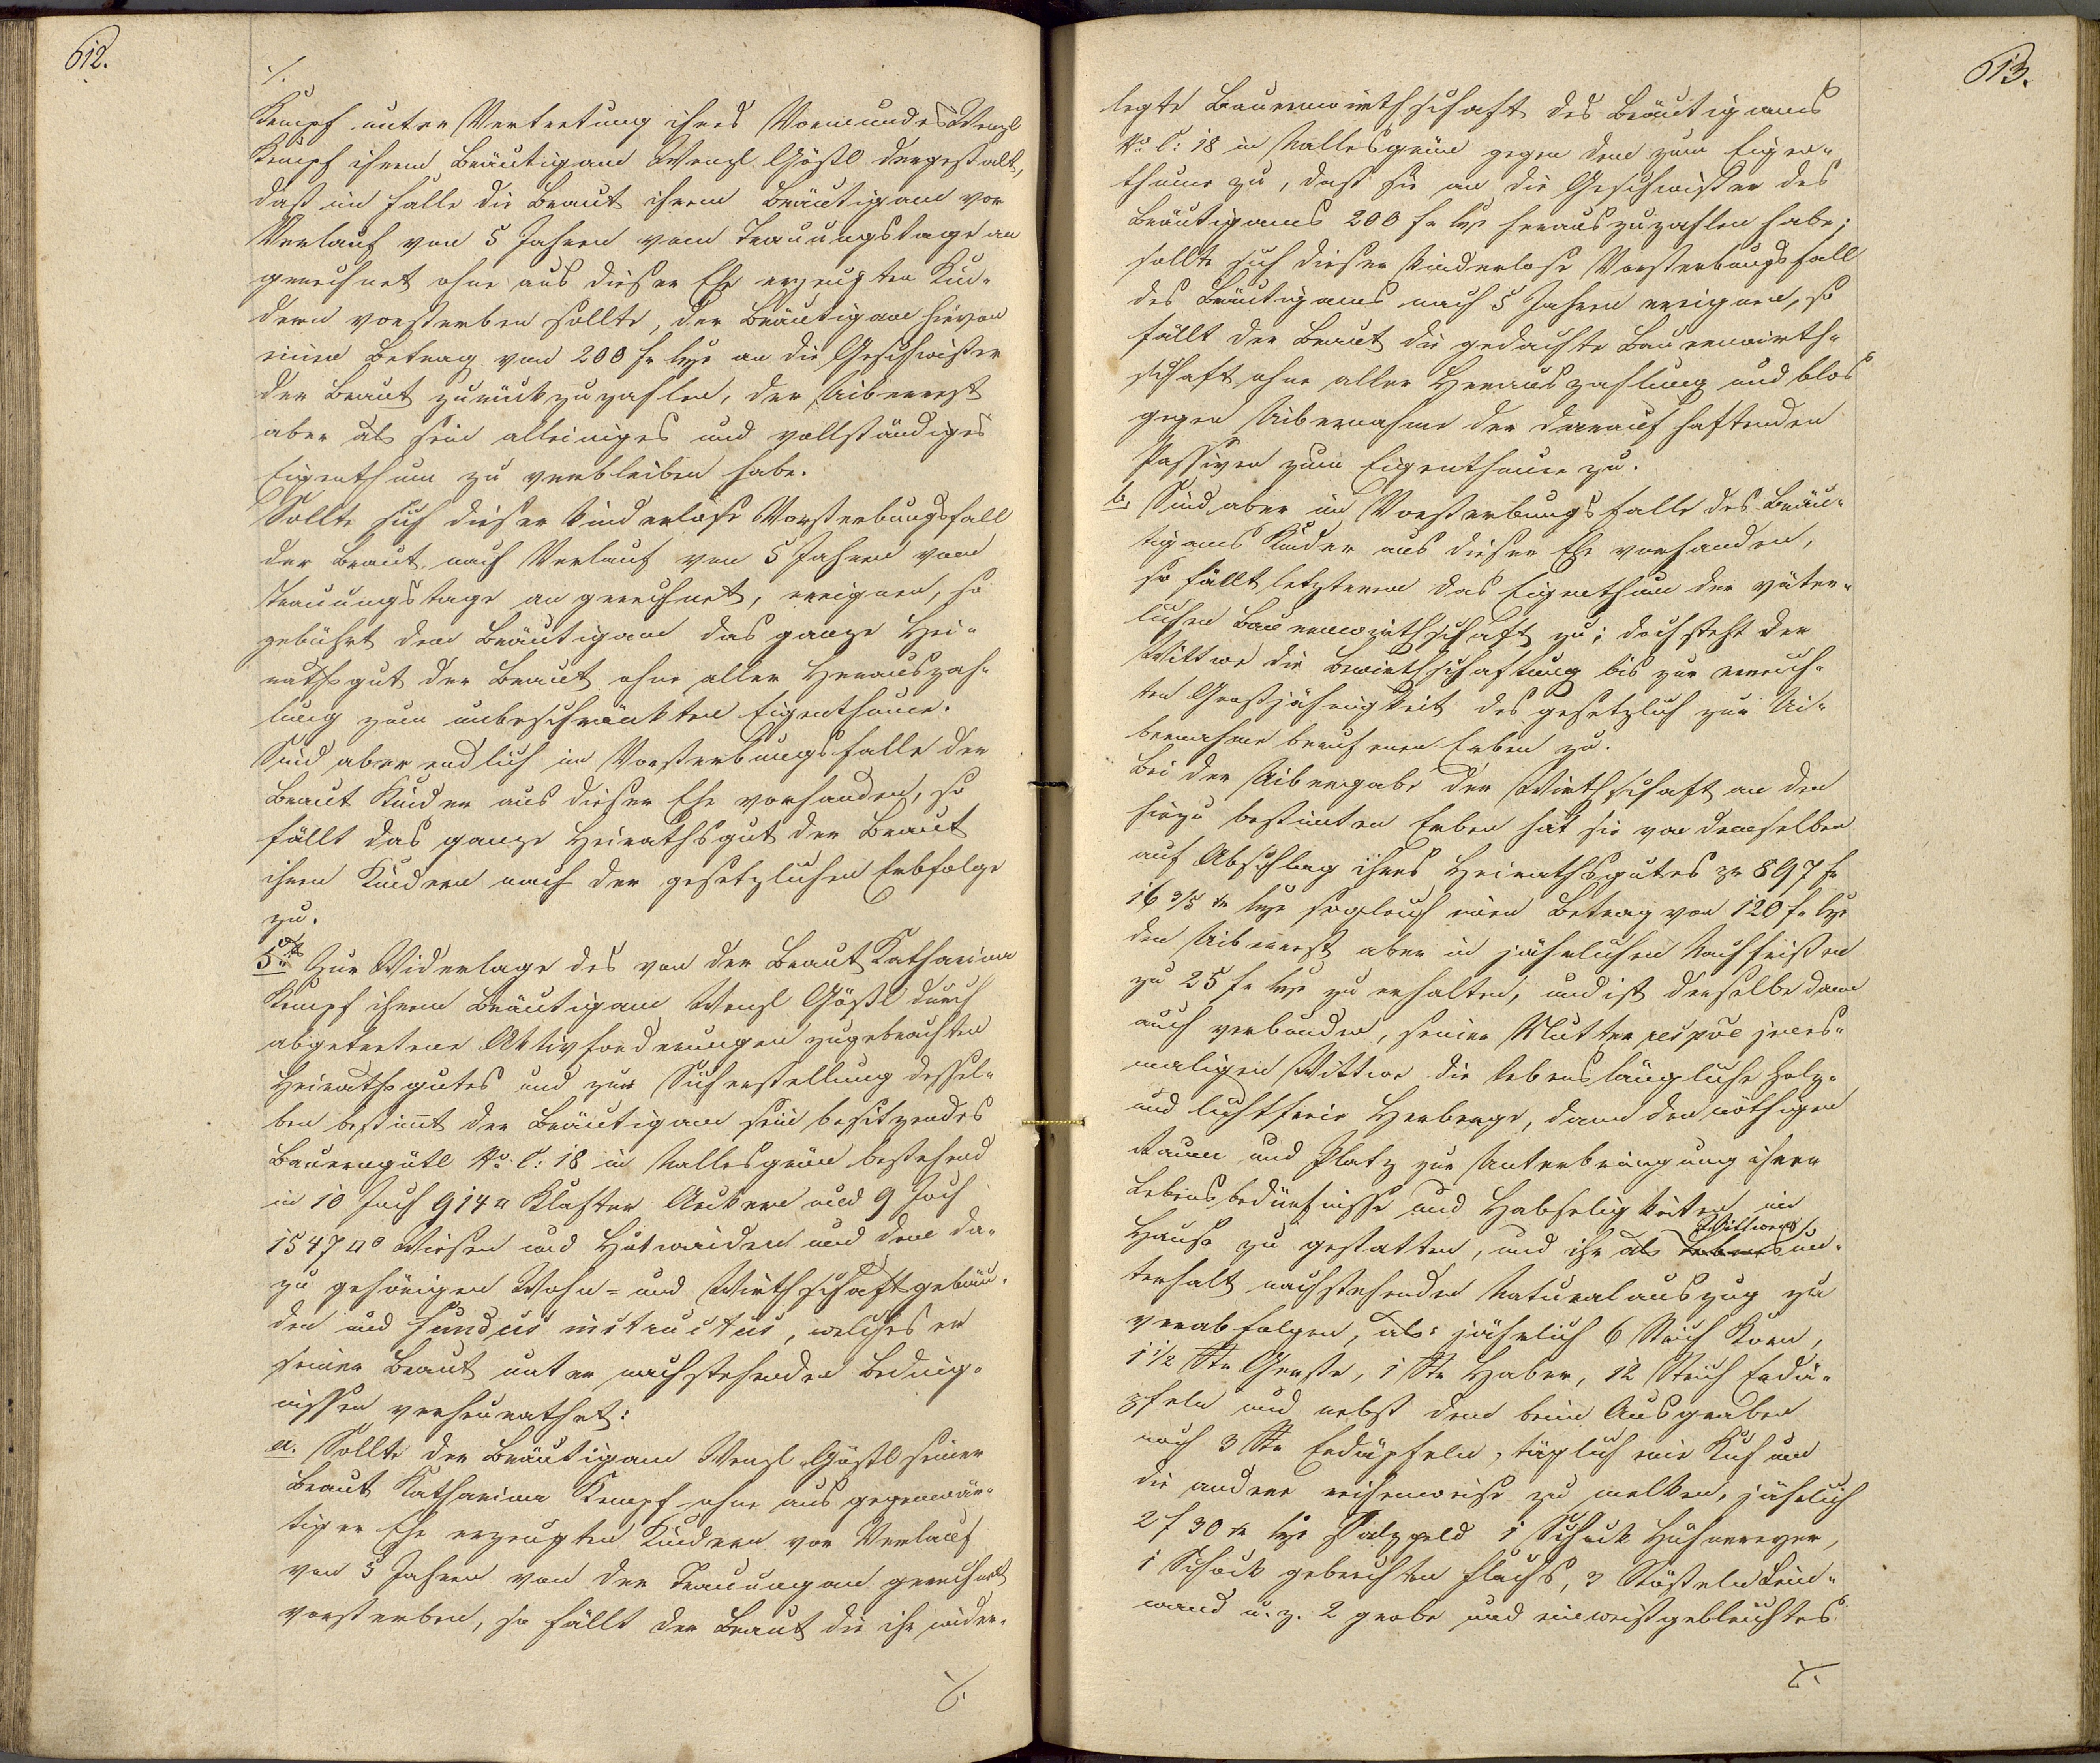 612.
./.
Kempf unter Vertretung ihres Vormundes Wenzl
Kempf ihrem Bräutigam Wenzl Gößl dergestalt,
daß im Falle die Braut ihrem Bräutigam vor
Verlauf von 5 Jahren vom Trauungstage an
gerechnet ohne aus dieser Ehe erzeugten Kin-
dern vorsterben sollte, der Bräutigam hievon
einen Betrag von 200 fr. Cvz an die Geschwister
der Braut zurückzuzahlen, der Uiberrest
aber als sein alleiniges und vollständiges
Eigenthum zu verbleiben habe.
Sollte sich dieser kinderlose Vorsterbungsfall
der Braut nach Verlauf von 5 Jahren vom
Trauungstage an gerechnet, ereignen, so
gebührt dem Bräutigam das ganze Hei-
rathsgut der Braut ohne aller Herauszah-
lung zum unbeschränkten Eigenthume.
Sind aber endlich im Vorsterbungsfalle der
Braut Kinder aus dieser Ehe vorhanden, so
fällt das ganze Heirathsgut der Braut
ihren Kindern nach der gesetzlichen Erbfolge
zu.
5tens Zur Widerlage des von der Braut Katharina
Kempf ihrem Bräutigam Wenzl Gößl durch
abgetretene Aktivforderungen zugebrachten
Heirathsgutes und zur Sicherstellung dessel-
ben bestimt der Bräutigam sein besitzendes
Bauerngütl No. C: 18 in Nallesgrün bestehend
in 10 Joch 914 □ Klafter Aeckern und 9 Joch
1547 □° Wiesen und Hutweiden und den da-
zu gehörigen Wohn- und Wirthschaftsgebäu-
den und fundus instructus, welches er
seiner Braut unter nachstehenden Beding-
nissen verheurathet:
a. Sollte der Bräutigam Wenzl Gößl seiner
Braut Katharina Kempf ohne aus gegenwär-
tiger Ehe erzeugten Kindern vor Verlauf
von 5 Jahren von der Trauung an gerechnet
vorsterben, so fällt der Braut die ihr wider-
./.
613.
legte Bauernwirthschaft des Bräutigams
No. C: 18 in Nallesgrün gegen dem zum Eigen-
thume zu, daß sie an die Geschwister des
Bräutigams 200 fr Cvz herauszuzahlen habe;
sollte sich dieser kinderlose Vorsterbungsfall
des Bräutigams nach 5 Jahren ereignen, so
fällt der Braut die gedachte Bauernwirth-
schaft ohne aller Herauszahlung und blos
gegen Uibernahme der darauf haftenden
Passiven zum Eigenthume zu.
b. Sind aber im Vorsterbungsfalle des Bräu-
tigams Kinder aus dieser Ehe vorhanden,
so fällt letzteren das Eigenthum der väter-
lichen Bauernwirthschaft zu; doch steht der
Wittwe die Bewirthschaftung bis zur erreich-
ten Großjährigkeit des gesetzlich zur Ui-
bernahme berufenen Erben zu.
Bei der Uibergabe der Wirthschaft an den
hiezu bestimten Erben hat sie von demselben
auf Abschlag ihres Heirathsgutes pr 897 fr
16 3/5 xr Cvz sogleich einen Betrag von 120 fr Cvz
den Uiberrest aber in jährlichen Nachfristen
zu 25 fr Cvz zu erhalten, und ist derselbe dann
auch verbunden, seiner Mutter respve jenes-
maligen Wittwe die lebenslängliche Holz-
und lichtfreie Herberge, dann den nöthigen
Raum und Platz zur Unterbringung ihrer
Lebensbedürfnisse und Habseligkeiten im
Hause zu gestatten, und ihr als Wittwens un-
terhalt nachstehenden Naturalauszug zu
verabfolgen, als: jährlich 6 Strich Korn,
1 1/2 Str Gerste, 1 Str Haber, 12 Strich Erdä-
pfeln und nebst dem beim Ausgraben
noch 3 Str Erdäpfeln, täglich eine Kuh um
die andere reihenweise zu melken, jährlich
2 f 30 xr Cvz Salzgeld 1 Schock Hühnereyer,
1 Schock gebrechten Flachs, 3 Stößeln Lein-
wand u. z. 2 grobe und ein weißgebleichtes
./.